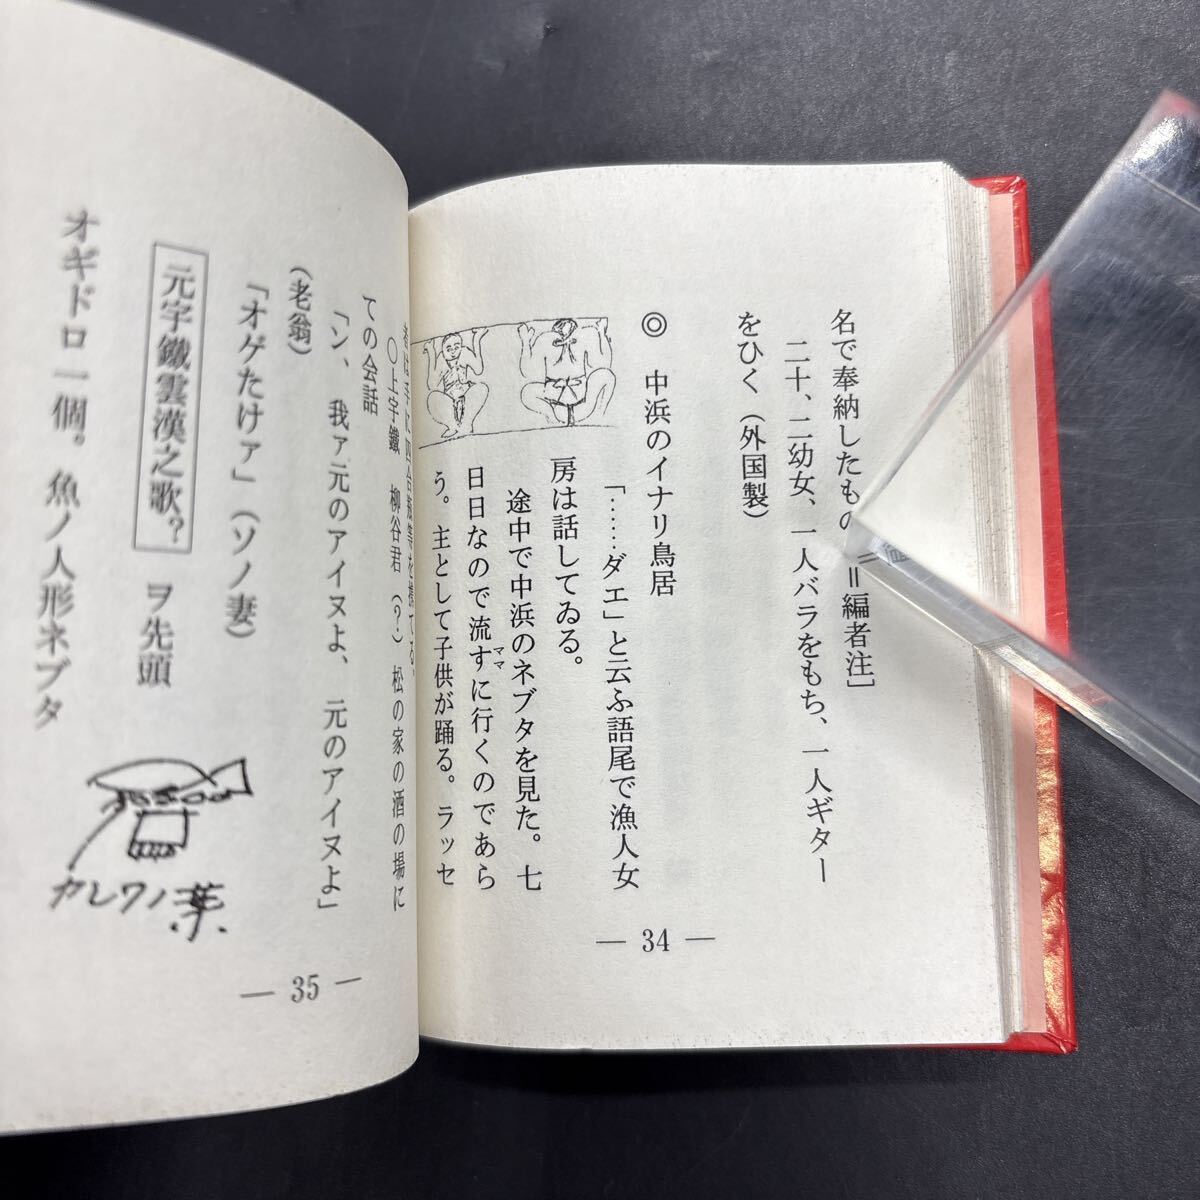 名で奉納したもの＝編者注］
二十、二幼女、一人バラをもち、一人ギター
をひく（外国製）
◎　中浜のイナリ鳥居
「……ダエ」と云ふ語尾で漁人女
房は話してゐる。
途中で中浜のネブタを見た。七
日日なので流すに行くのであら
ママ
う。主として子供が踊る。ラッセ
— 34 —
等を携てる。
〇上宇鐵　柳谷君（？）松の家の酒の場に
ての会話
「ン、我ァ元のアイヌよ、元のアイヌよ」
（老翁）
「オゲたけァ」（ソノ妻）
元宇鐵雲漢之歌？　ヲ先頭
オギドロ一個。魚ノ人形ネブタ
カレワノ葉
— 35 —